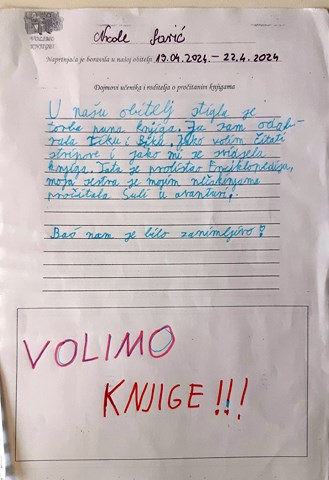 VOLIMO
KNJIGE
Nicole Sarić
Naprtnjača je boravila u našoj obitelji 19.04.2024. — 22.4.2024
Dojmovi učenika i roditelja o pročitanim knjigama
U našu obitelj stigla je
torba puna knjiga. Ja sam odab-
rala Tiku i Jako volim čitati
stripove i jako mi se svidjela
knjiga. Tata je prolistao Enciklopediju,
moja sestra je mojim nećakinjama
pročitala Suli u avanturi.
Baš nam je bilo zanimljivo!
VOLIMO
KNJIGE!!!